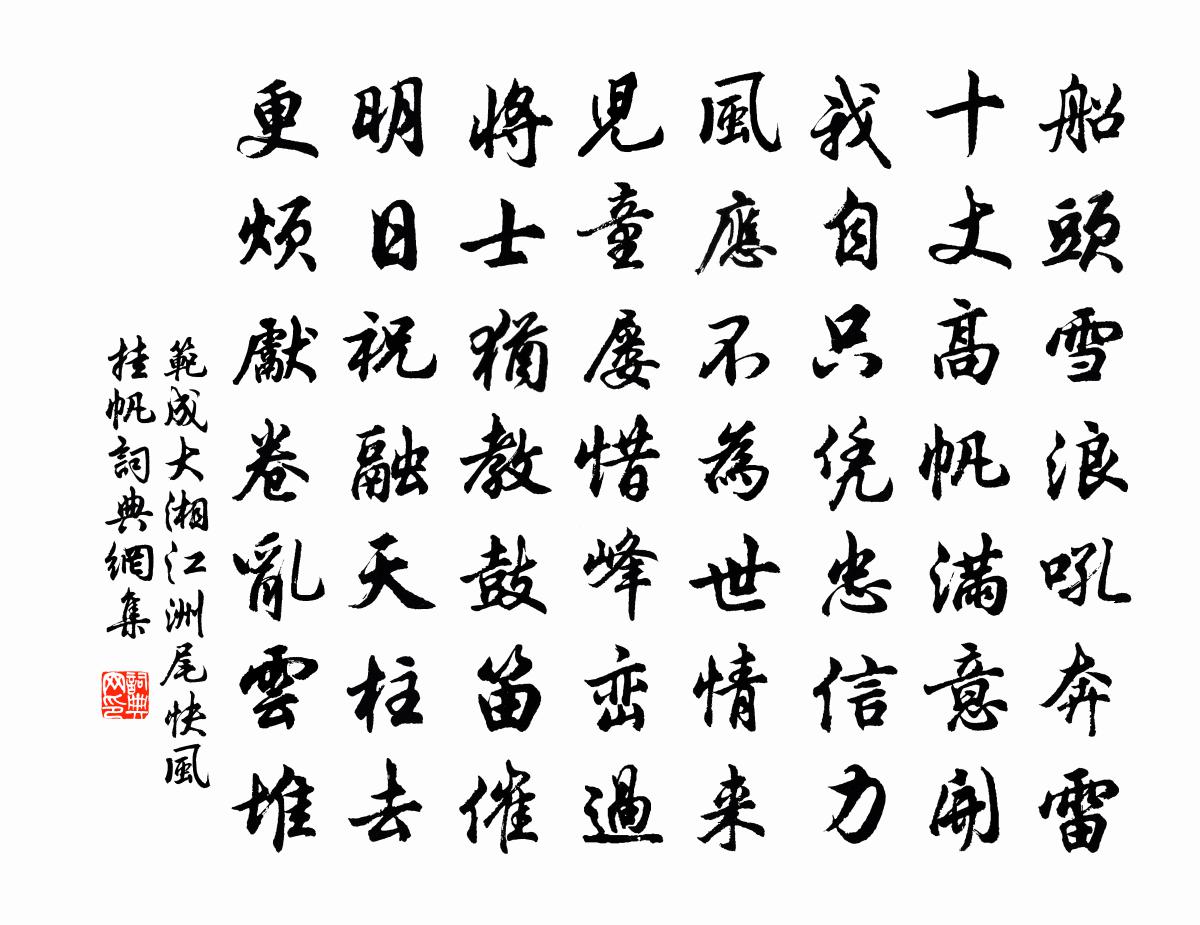 船頭雪浪吼奔雷
十丈高帆滿意開
我自只凭忠信力
風應不為世情来
兒童屢惜峰巒過
將士猶教鼓笛催
明日祝融天柱去
更煩獻卷亂雲堆
範成大湘江洲尾快風
挂帆詞典網集
詞典
网印